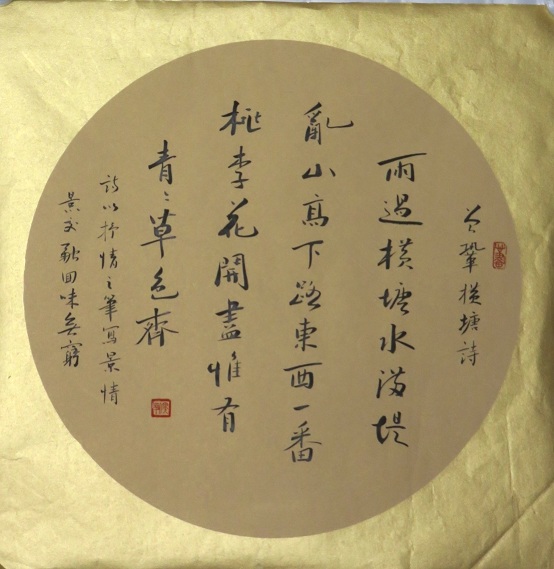 曾鞏橫塘詩
雨過橫塘水滿堤
亂山高下路東西一番
桃李花開盡惟有
青〻草色齊
詩以抒情之筆寫景情
景交融回味無窮